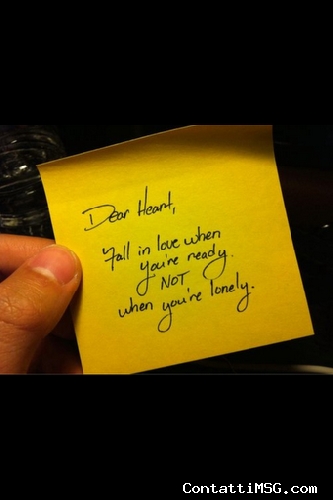 Dear Heart,
Fall in love when
you're ready.
NOT
when you're lonely.
ContattiMSG.com